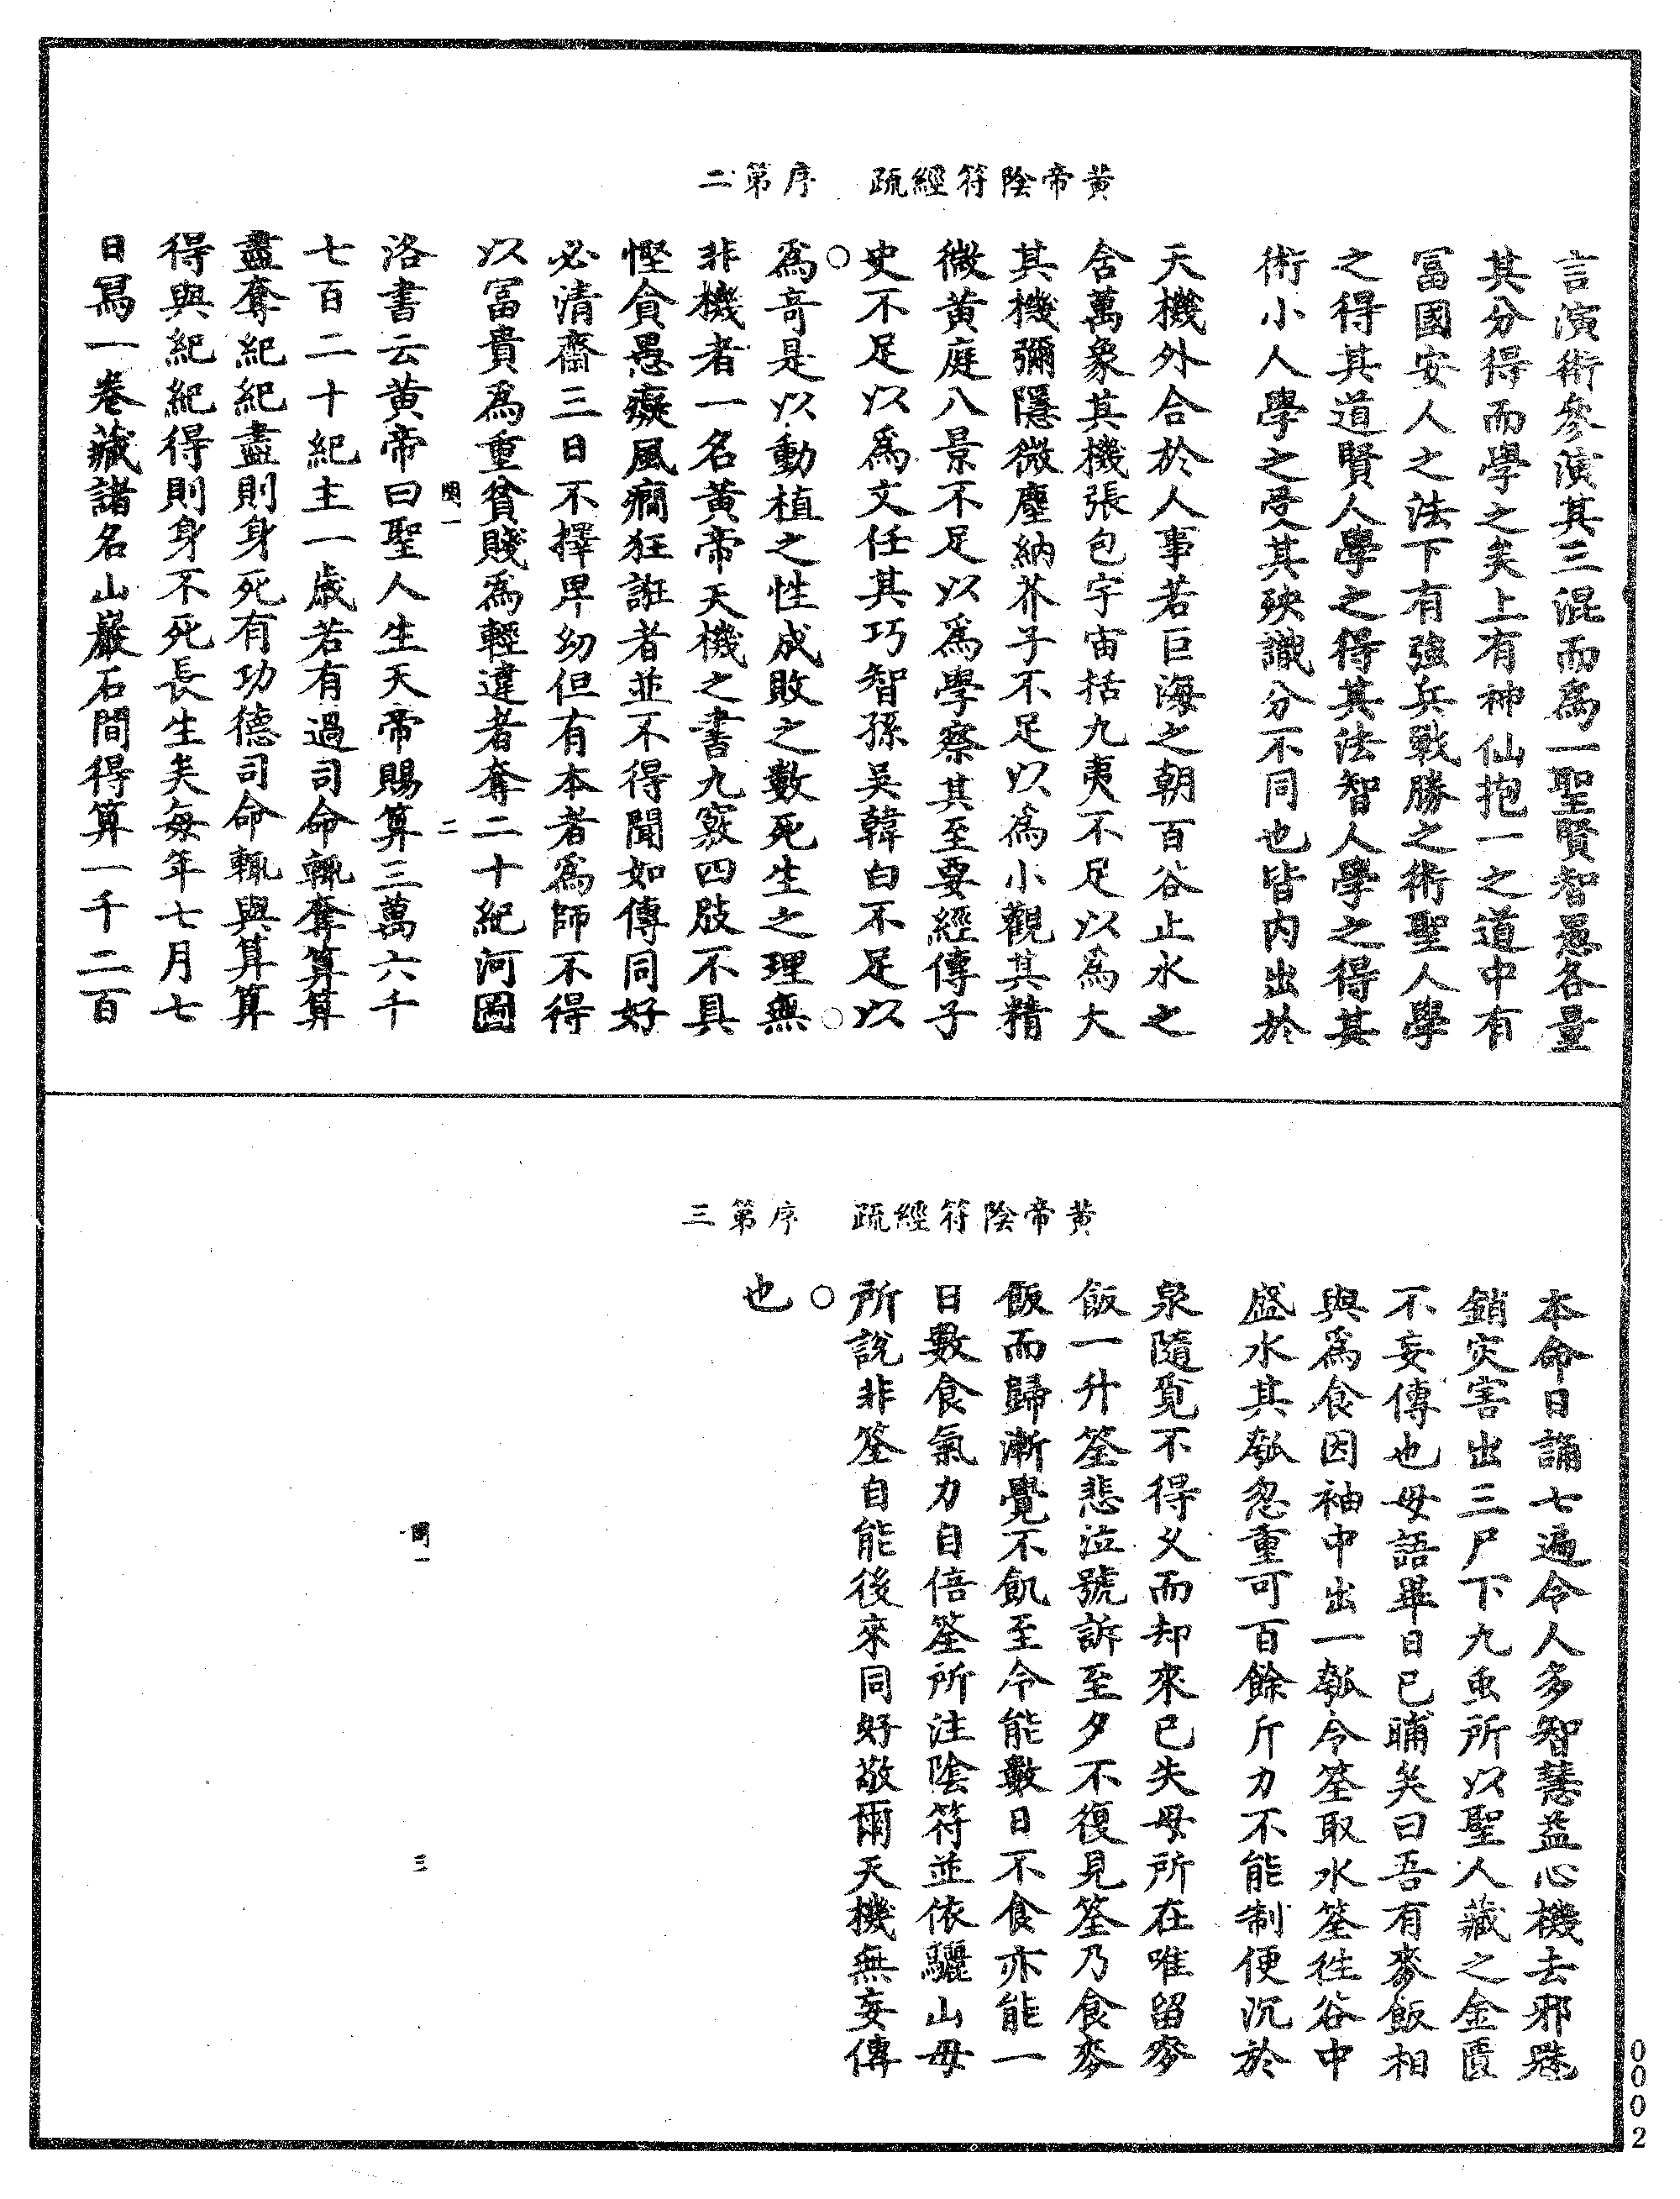 黃帝陰符經疏　序第二
言演術參演其三混而爲一聖賢智愚各量
其分得而學之矣上有神仙抱一之道中有
冨國安人之法下有強兵戰勝之術聖人學
之得其道賢人學之得其法智人學之得其
術小人學之受其殃識分不同也皆內出於
天機外合於人事若巨海之朝百谷止水之
含萬象其機張包宇宙括九夷不足以爲大
其機彌隱微塵納芥子不足以爲小觀其精
微黃庭八景不足以爲學察其至要經傳子
史不足以爲文任其巧智孫吳韓白不足以
爲竒是以動植之性成敗之數死生之理無
○
○
非機者一名黃帝天機之書九竅四肢不具
慳貪愚癡風癇狂誑者並不得聞如傳同好
必清齋三日不擇卑幼但有本者爲師不得
以冨貴爲重貧賤爲輕違者奪二十紀河圖
閏一　二
洛書云黃帝曰聖人生天帝賜算三萬六千
七百二十紀主一歲若有過司命輒奪算算
盡奪紀紀盡則身死有功德司命輒與算算
得與紀紀得則身不死長生矣每年七月七
日寫一卷藏諸名山巖石間得算一千二百
黃帝陰符經疏　序第三
本命日誦七遍令人多智慧益心機去邪魅
銷灾害出三尸下九虫所以聖人藏之金匱
不妄傳也母語畢日已晡矣曰吾有麥飯相
與爲食因袖中出一瓠令筌取水筌往谷中
盛水其瓠忽重可百餘斤力不能制便沉於
泉隨覓不得乆而却來已失母所在唯留麥
飯一升筌悲泣號訴至夕不復見筌乃食麥
飯而歸漸覺不飢至今能數日不食亦能一
日數食氣力自倍筌所注陰符並依驪山母
所說非筌自能後來同好敬爾天機無妄傳
○
也
閏一　三
0002